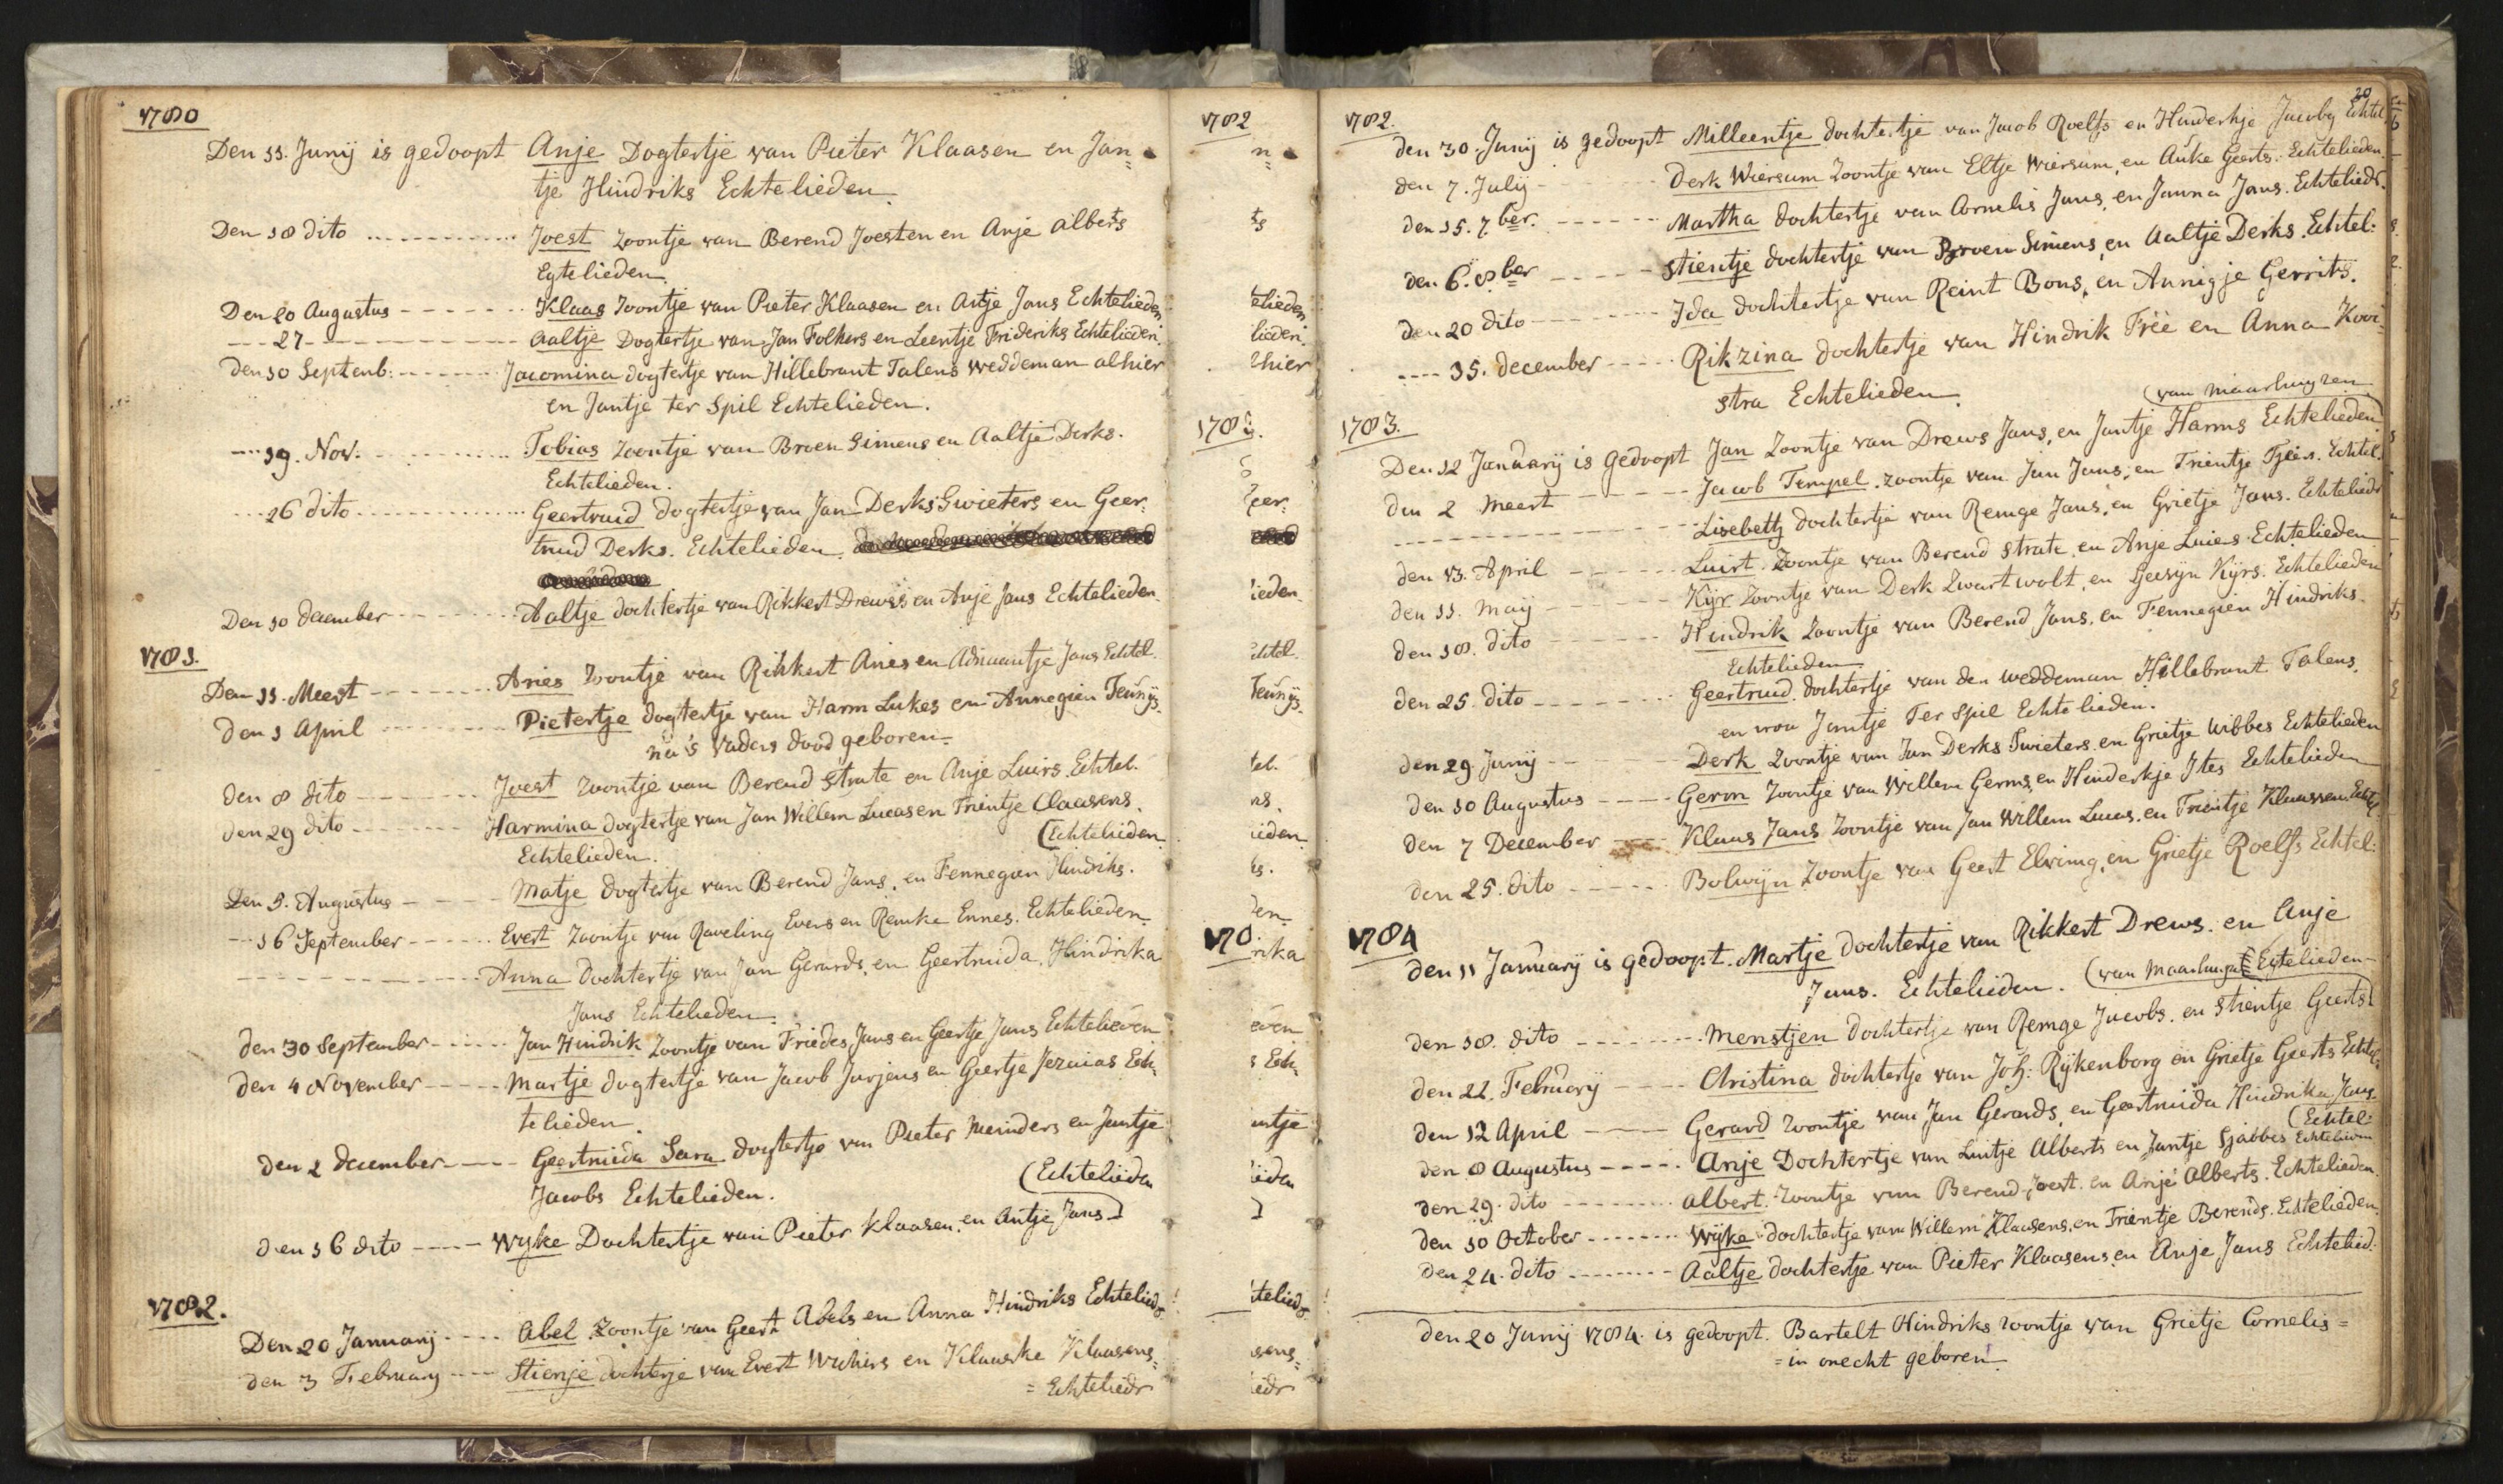 1780
Den 11. Junij is gedoopt Anje Dogtertje van Pieter Klaasen en Jan=
tje Hindriks Echtelieden.
Den 18 dito Joest zoontje van Berend Joesten en Anje Alberts
Egtelieden.
Den 20 Augustus Klaas Zoontje van Pieter Klaasen en Antje Jans Echtelieden
27 Aaltje Dogtertje van Jan Folkers en Leentje Frideriks Echtelieden.
Den 10 Septemb: Jacomina dogtertje van Hillebrant Talens weddeman alhier
en Jantje ter Spil Echtelieden.
19. Nov. Tobias zoontje van Broen Simens en Aaltje Derks.
Echtelieden.
26 dito Geertruid Dogtertje van Jan Derks Swieters en Geer:
truid Derks. Echtelieden.
Den 10 december Aaltje dochtertje van Rikkert Drewes en Anje Jans Echtelieden.
1781.
Den 11. Meert Aries Zoontje van Rikkert Aries en Adriaantje Jans Echtel.
den 1 April Pietertje dogtertje van Harm Lukes en Annegien Teunys.
na 's Vaders dood geboren.
den 8 dito Joest zoontje van Berend Strate en Anje Luirs. Echtel.
den 29 dito Harmina dogtertje van Jan Willem Lucas en Trientje Claasens.
Echtelieden. (Echtelieden
Den 5. Augustus Matje dogtertje van Berend Jans, en Fennegien Hindriks.
16 September Evert zoontje van Raveling Evers en Remke Ennes. Echtelieden
Anna Dochtertje van Jan Gerards, en Geertruida Hindrika
Jans Echtelieden.
den 30 September Jan Hindrik Zoontje van Friedes Jans en Geertje Jans Echtelieden
den 4 November Martje dogtertje van Jacob Jurjens en Geertje Jezaias Ech=
telieden.
den 2 december Geertruida Sara dogtertje van Pieter Meinders en Jantje
Jacobs Echtelieden. (Echtelieden
den 16 dito Wyke Dochtertje van Pieter Klaasen, en Antje Jans)
1782.
Den 20 Januarij Abel zoontje van Geert Abels en Anna Hindriks Echtelied
den 3 February Stientje dochterje van Evert Wichers en Klaaske Klaasens=
= Echteliedr
1782
1782.
20
den 30. Junij is gedoopt Milleentje dochtertje van Jacob Roelfs en Hinderkje Jacobs Echtel
den 7. Julij Derk Wiersum Zoontje van Eltje Wiersum, en Auke Geerts. Echtelieden.
den 15. 7ber. Martha dochtertje van Cornelis Jans, en Janna Jans. Echteliedr.
den 6. 8ber Stientje dochtertje van Broen Simens, en Aaltje Derks. Echtel:
den 20 dito Ida dochtertje van Reint Bons, en Annigje Gerrits.
15. december Rikzina dochtertje van Hindrik Freè en Anna Kooi=
stra Echtelieden.
1783. (van Maarhuyzen
Den 12 January is Gedoopt Jan Zoontje van Drews Jans, en Jantje Harms Echtelieden)
den 2 Meert Jacob Tempel. zoontje van Jan Jans, en Trientje Tjees. Echtel.
Lisebeth dochtertje van Remge Jans, en Grietje Jans. Echteliedr
den 13. April Luirt. Zoontje van Berend Strate, en Anje Luirs Echtelieden
den 11. maij Kijr Zoontje van Derk Zwartwolt, en Geesyn Kijrs. Echtelieden
den 18. dito Hindrik Zoontje van Berend Jans. en Fennegien Hindriks
Echtelieden
den 25. dito Geertruid. dochtertje van den weddeman Hillebrant Talens.
en vrou Jantje Ter Spil Echtelieden.
den 29. Junij Derk Zoontje van Jan Derks Swieters. en Grietje Wibbes Echtelieden
den 10 Augustus Germ Zoontje van Willem Germs, en Hinderkje Ites Echtelieden
den 7 December Klaas Jans Zoontje van Jan Willem Lucas, en Trientje Klaassens Echtel.
den 25. dito Bolwyn Zoontje van Geert Elving, en Grietje Roelfs Echtel:
1784
den 11 January is gedoopt. Martje dochtertje van Rikkert Drews. en Anje
Jans. Echtelieden. (van Maarhuyzen Egtelieden
den 18. dito Menstjen dochtertje van Remge Jacobs. en Stientje Geerts)
den 22. February Christina dochtertje van Joh: Rijkenborg en Grietje Geerts Echtel.
den 12 April Gerard zoontje van Jan Gerards, en Geertruida Hindrika Jans.
(Echtel:
den 8 Augustus Anje Dochtertje van Luitje Alberts en Jantje Sjabbes Echtelieden
den 29. dito Albert. zoontje van Berend Joest. en Anje Alberts. Echtelieden.
den 10 October Wyke dochtertje van Willem Klaasens, en Trientje Berends. Echtelieden.
den 24. dito Aaltje dochtertje van Pieter Klaasens, en Anje Jans Echtelied.
den 20 Junij 1784. is gedoopt. Bartelt Hindriks zoontje van Grietje Cornelis=
=in onecht geboren.